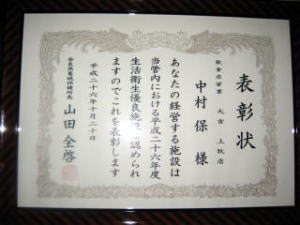 表彰状
飲食店営業 大吉 上牧店
中村 保 様
あなたの経営する施設は
当管内における平成二十六年度
生活衛生優良施設と認められ
ますのでこれを表彰します
平成二十六年十月二十日
奈良県葛城保健所長
山田全啓